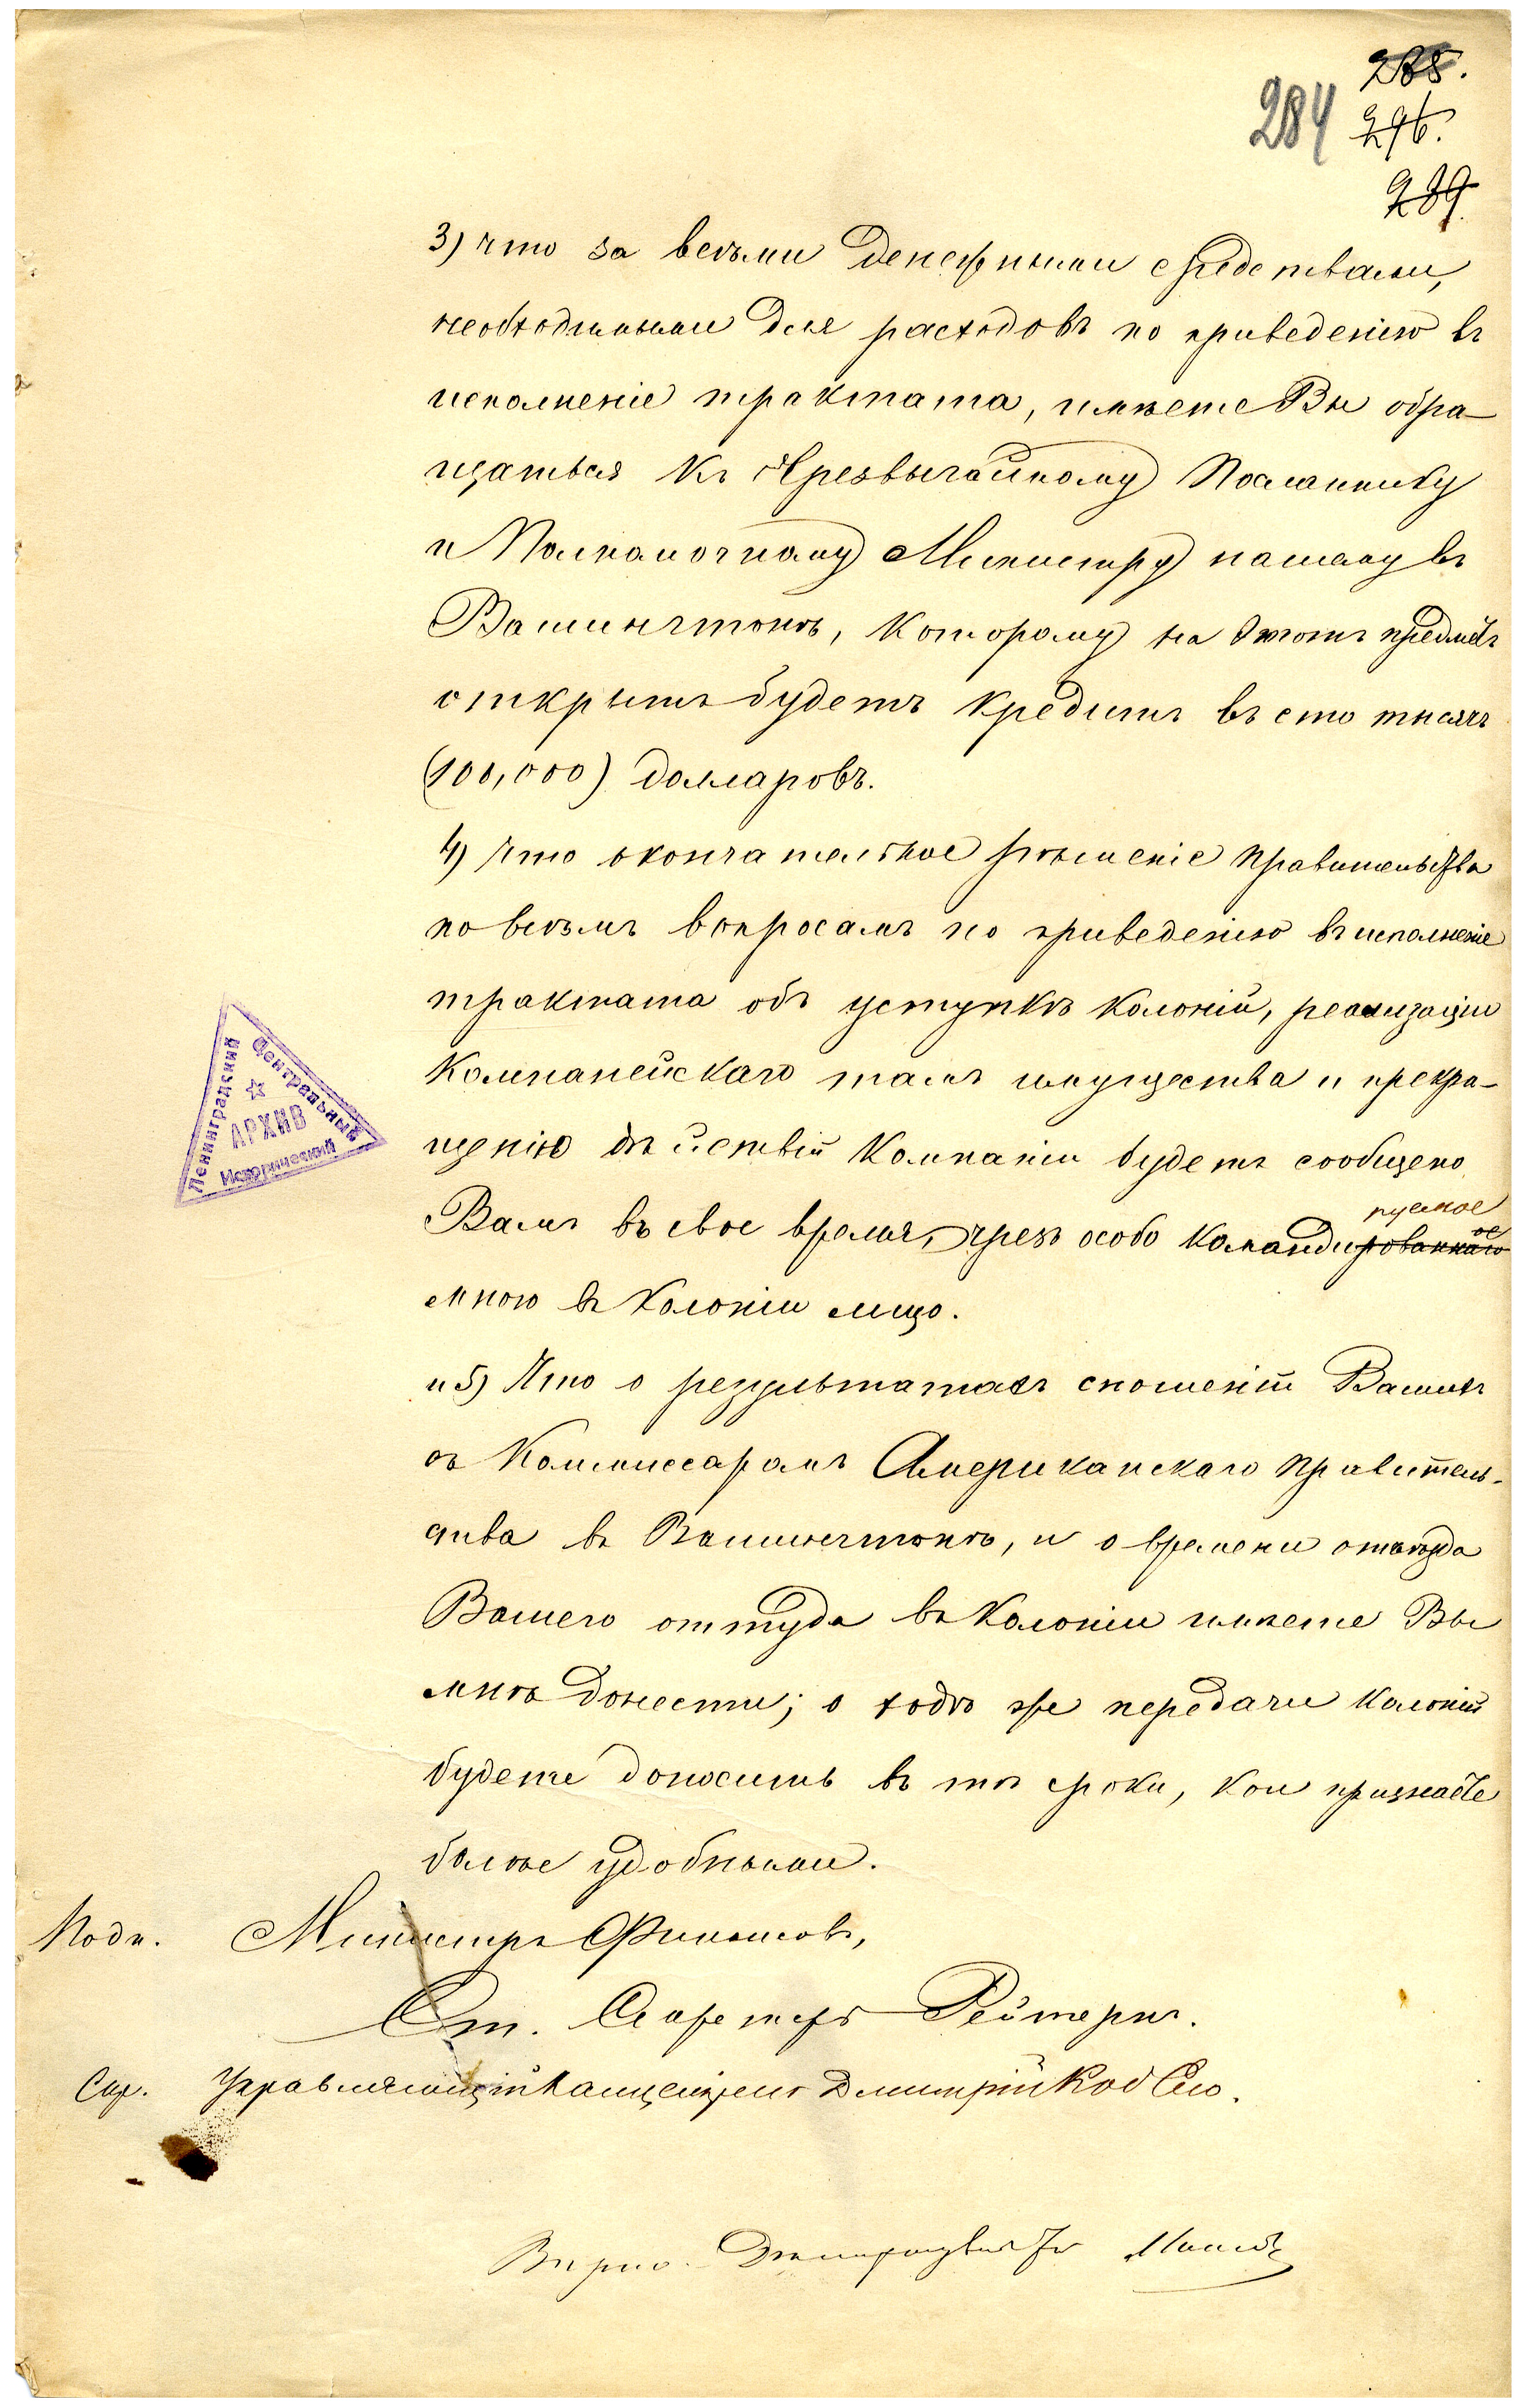 285.
284 296.
289.
3) что за всѣми денежными средствами,
необходимыми для расходовъ по приведенію въ
исполненіе трактата, имѣете Вы обра-
щаться къ Чрезвычайному Посланнику
и Полномочному Министру нашему въ
Вашингтонѣ, которому на этотъ предметъ
открытъ будетъ кредитъ въ сто тысячъ
(100,000) долларовъ.
4) что окончательное рѣшеніе Правительства
по всѣмъ вопросамъ по приведенію въ исполненіе
трактата объ уступкѣ колоній, реализаціи
Компанейскаго тамъ имущества и прекра-
щенію дѣйствій Компаніи будетъ сообщено
Вамъ въ свое время, чрезъ особо командированное
мною въ Колоніи лицо.
и 5) Что о результатахъ сношеній Вашихъ
съ Коммиссаромъ Американскаго Правитель-
ства въ Вашингтонѣ, и о времени отъѣзда
Вашего оттуда въ Колоніи имѣете Вы
мнѣ донести; о ходѣ же передачи Колоній
будете доносить въ тѣ сроки, кои признаете
болѣе удобными.
Подп. Министръ Финансовъ,
Ст. Секретарь Рейтернъ.
Скр. Управляющій Канцеляріею Дмитрій Кобеко.
Вѣрно.
Ленинградский
Центральный
Исторический
АРХИВ